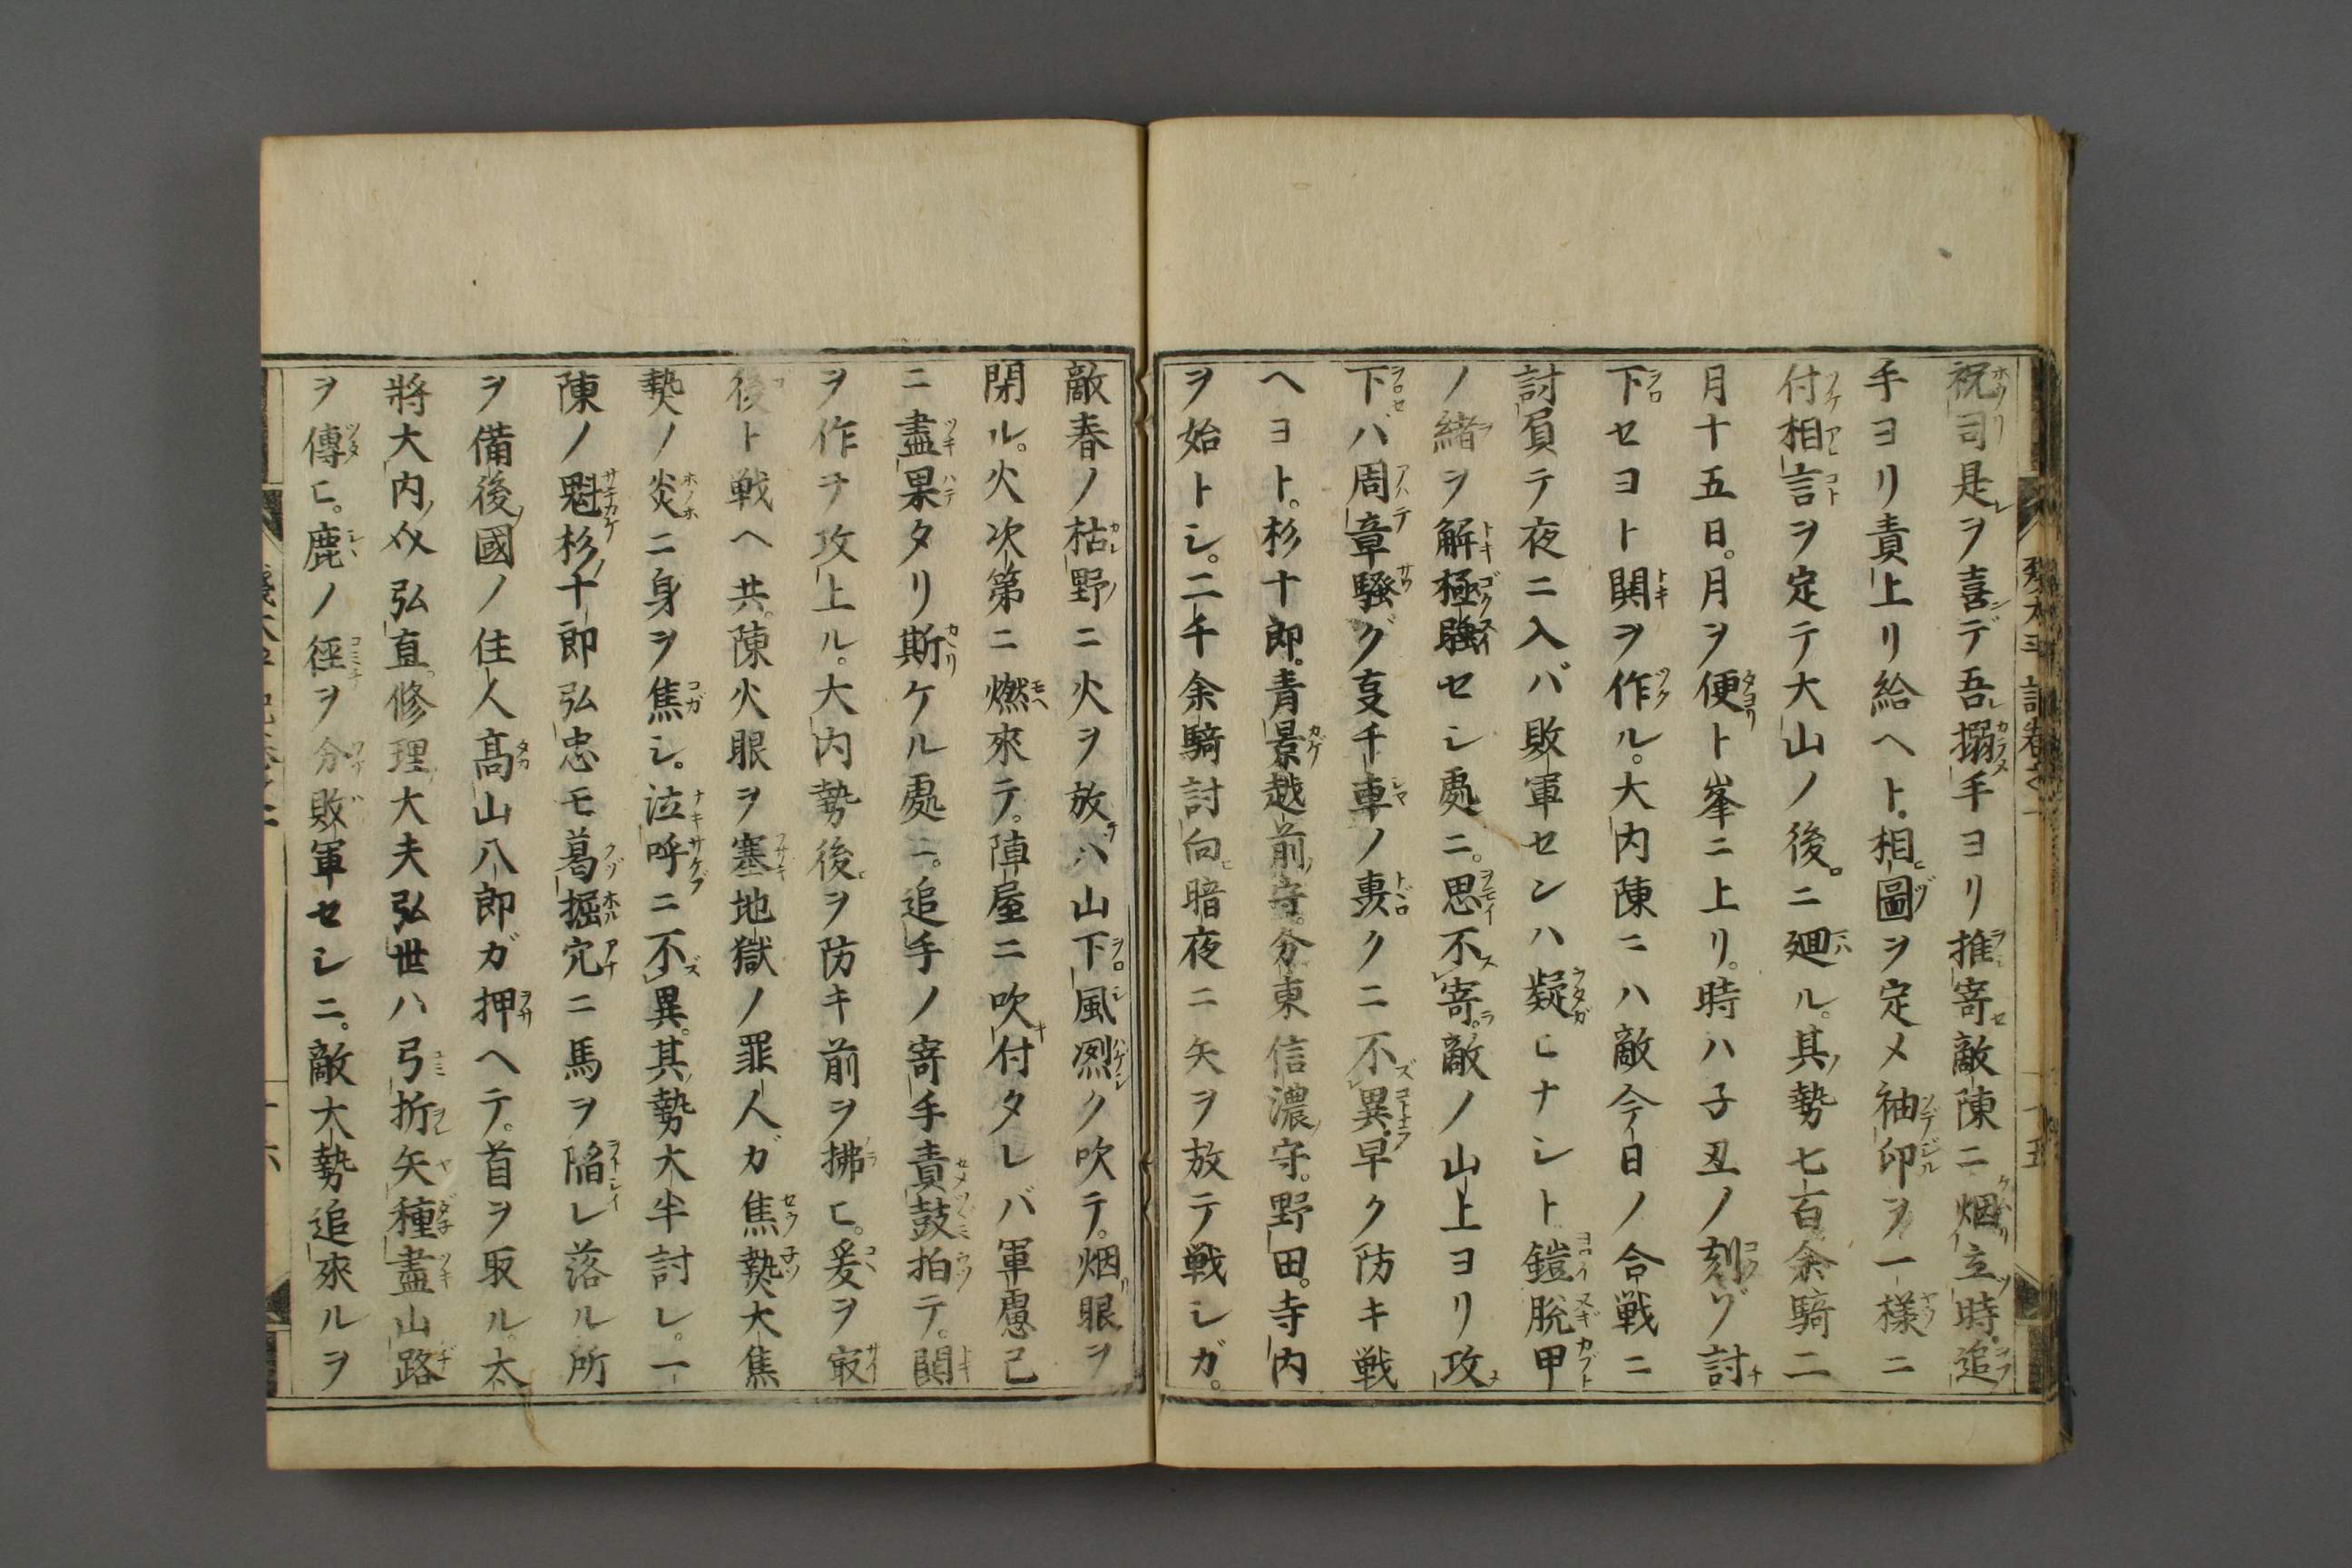 祝司是ヲ喜デ吾搦手ヨリ推寄敵陳ニ烟立時追
手ヨリ責上リ給ヘト相圖ヲ定メ袖印ヲ一様ニ
付相言ヲ定テ大山ノ後ニ廻ル其勢七百余騎二
月十五日月ヲ便ト峯ニ上リ時ハ子丑ノ刻ゾ討
下セヨト鬨ヲ作ル大内陳ニハ敵今日ノ合戦ニ
討負テ夜ニ入バ敗軍センハ疑ヒナシト鎧脱甲
ノ緒ヲ解極睡セシ處ニ思不寄敵ノ山上ヨリ攻
下バ周章騒グ叓千車ノ轟クニ不異早ク防キ戦
ヘヨト杉十郎青景越前守分東信濃守野田寺内
ヲ始トシ二千余騎討向暗夜ニ矢ヲ放テ戦シガ
敵春ノ枯野ニ火ヲ放ハ山下風烈ク吹テ烟眼ヲ
閉ル火次第ニ燃來テ陣屋ニ吹付タレバ軍慮已
ニ盡果タリ斯ケル處ニ追手ノ寄手責鼓拍テ鬨
ヲ作テ攻上ル大内勢後ヲ防キ前ヲ拂ヒ爰ヲ㝡
後ト戦ヘ共陳火眼ヲ塞地獄ノ罪人ガ焦熱大焦
熱ノ炎ニ身ヲ焦シ泣呼ニ不異其勢大半討レ一
陳ノ魁杉十郎弘忠モ葛掘穴ニ馬ヲ陥レ落ル所
ヲ備後國ノ住人高山八郎ガ押ヘテ首ヲ取ル太
將大内〆弘直修理大夫弘世ハ弓折矢種盡山路
ヲ傳ヒ鹿ノ徑ヲ分敗軍セシニ敵大勢追來ルヲ